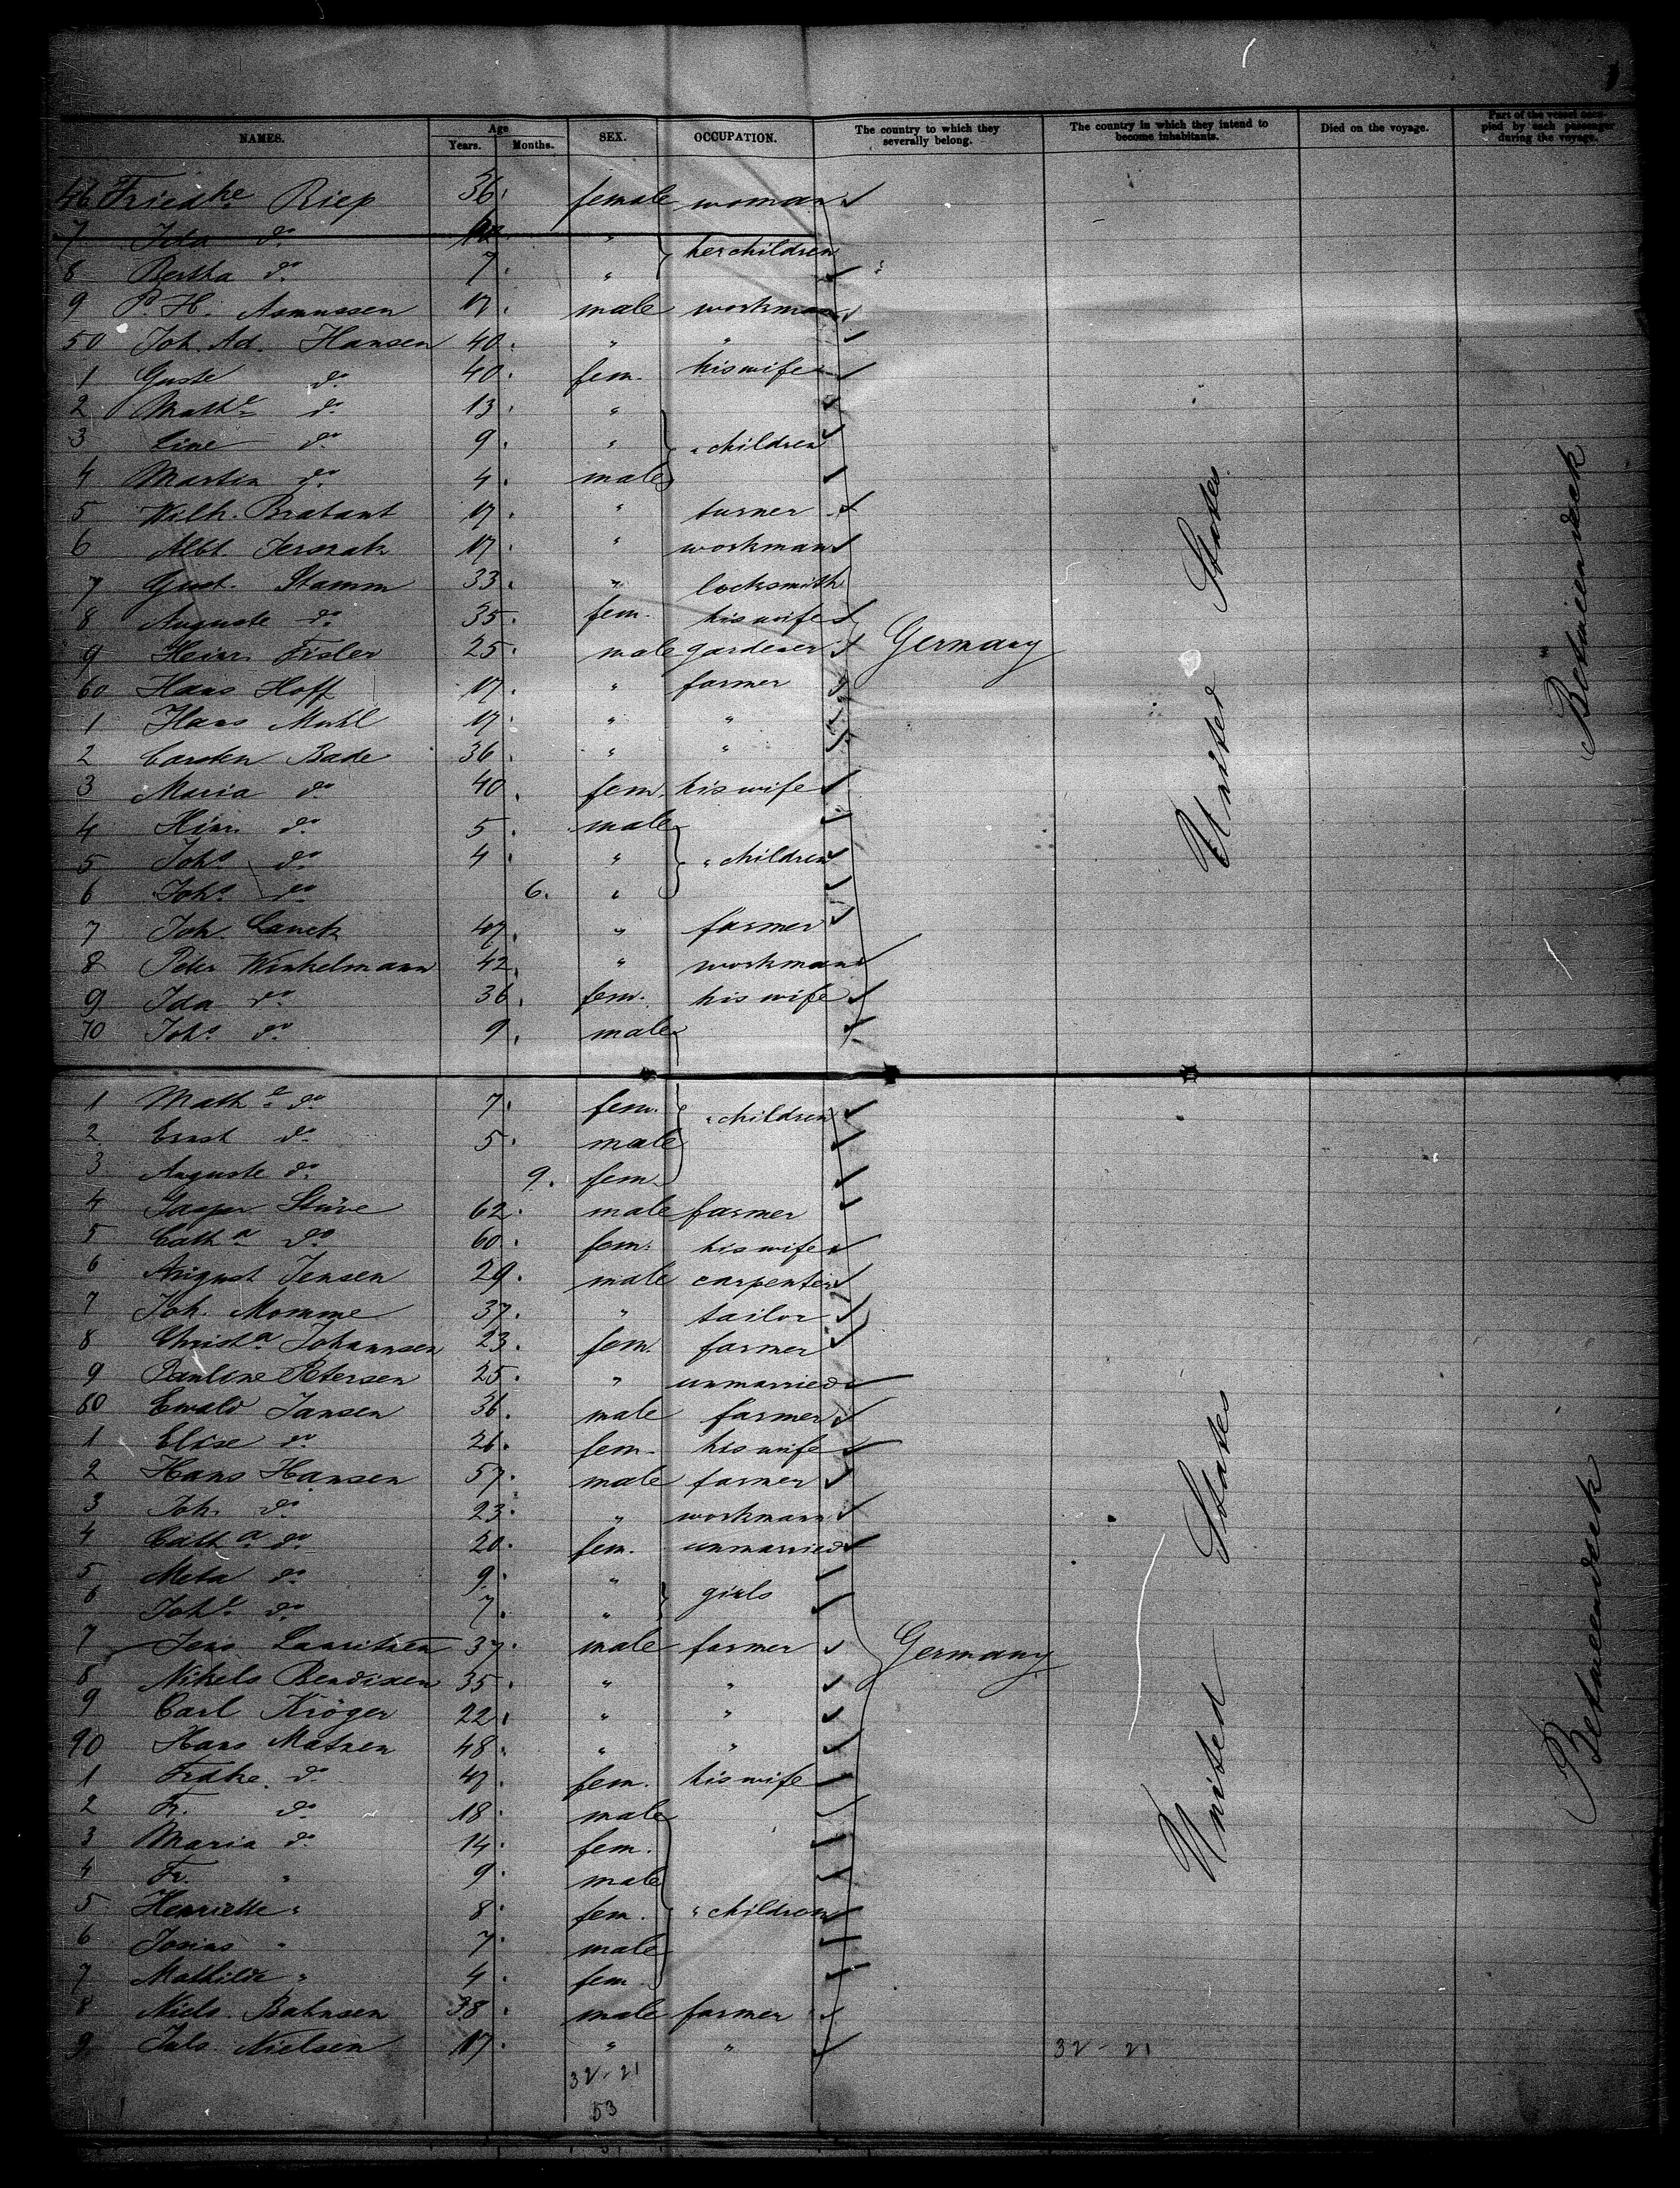 NAMES. Age Years. Months. SEX. OCCUPATION. The country to which they severally belong. The country in which they intend to become inhabitants. Died on the voyage. Part of the vessel occupied by each passenger during the voyage.
46 Friedke Riep 36. female woman
7 Ida do "
8 Bertha do 7. " her children
9 P. H. Asmussen 17. male workman
50 Joh. Ad. Hansen 40. " "
1 Guste do 40. fem. his wife
2 Mathe do 13. "
3 Line do 9. " " children
4 Martin do 4. male
5 Wilh. Brabant 17. " turner
6 Albt. 17. " workman
7 Gust. Stamm 33. " locksmith
8 Auguste do 35. fem. his wife
9 Heinr. Fisler 25. male gardener Germany
60 Hans Hoff 17. " farmer
1 Hans Muhl 17. " "
2 Carsten Bade 36. " "
3 Maria do 40. fem. his wife
4 Hinr. do 5. male
5 Johs do 4. " " children
6 Johs do 6. "
7 Joh. Lanck 47. " farmer
8 Peter Winkelmann 42. " workman
9 Ida do 36. fem. his wife
70 Johs do 9. male
United States
Between deck
1 Mathe do 7. fem. " children
2 Ernst do 5. male
3 Auguste do 9. fem.
4 Jasper Stüve 62. male farmer
5 Catha do 60. fem. his wife
6 August Jensen 29. male carpenter
7 Joh. Momme 37. " tailor
8 Christa Johannsen 23. fem. farmer
9 Pauline Petersen 25. " unmarried
80 Ewald Jansen 36. male farmer
1 Elise do 26. fem. his wife
2 Hans Hansen 57. male farmer
3 Joh. do 23. " workman
4 Catha do 20. fem. unmarried
5 Meta do 9. "
6 Johe do 7. " girls
7 Jens Lauritzen 37. male farmer Germany
8 Nikels Bendixen 35. " "
9 Carl Kröger 22. " "
90 Hans Matzen 48. " "
1 Frdke. do 47. fem. his wife
2 Fr. do 18. male
3 Maria do 14. fem.
4 Fr. " 9. male
5 Henriette " 8. fem. " children
6 Josias " 7. male
7 Mathilde " 4. fem.
8 Niels. Bahnsen 38. male farmer
9 Juls. Nielsen 17. " "
United States
Between deck
32-21
32-21
53